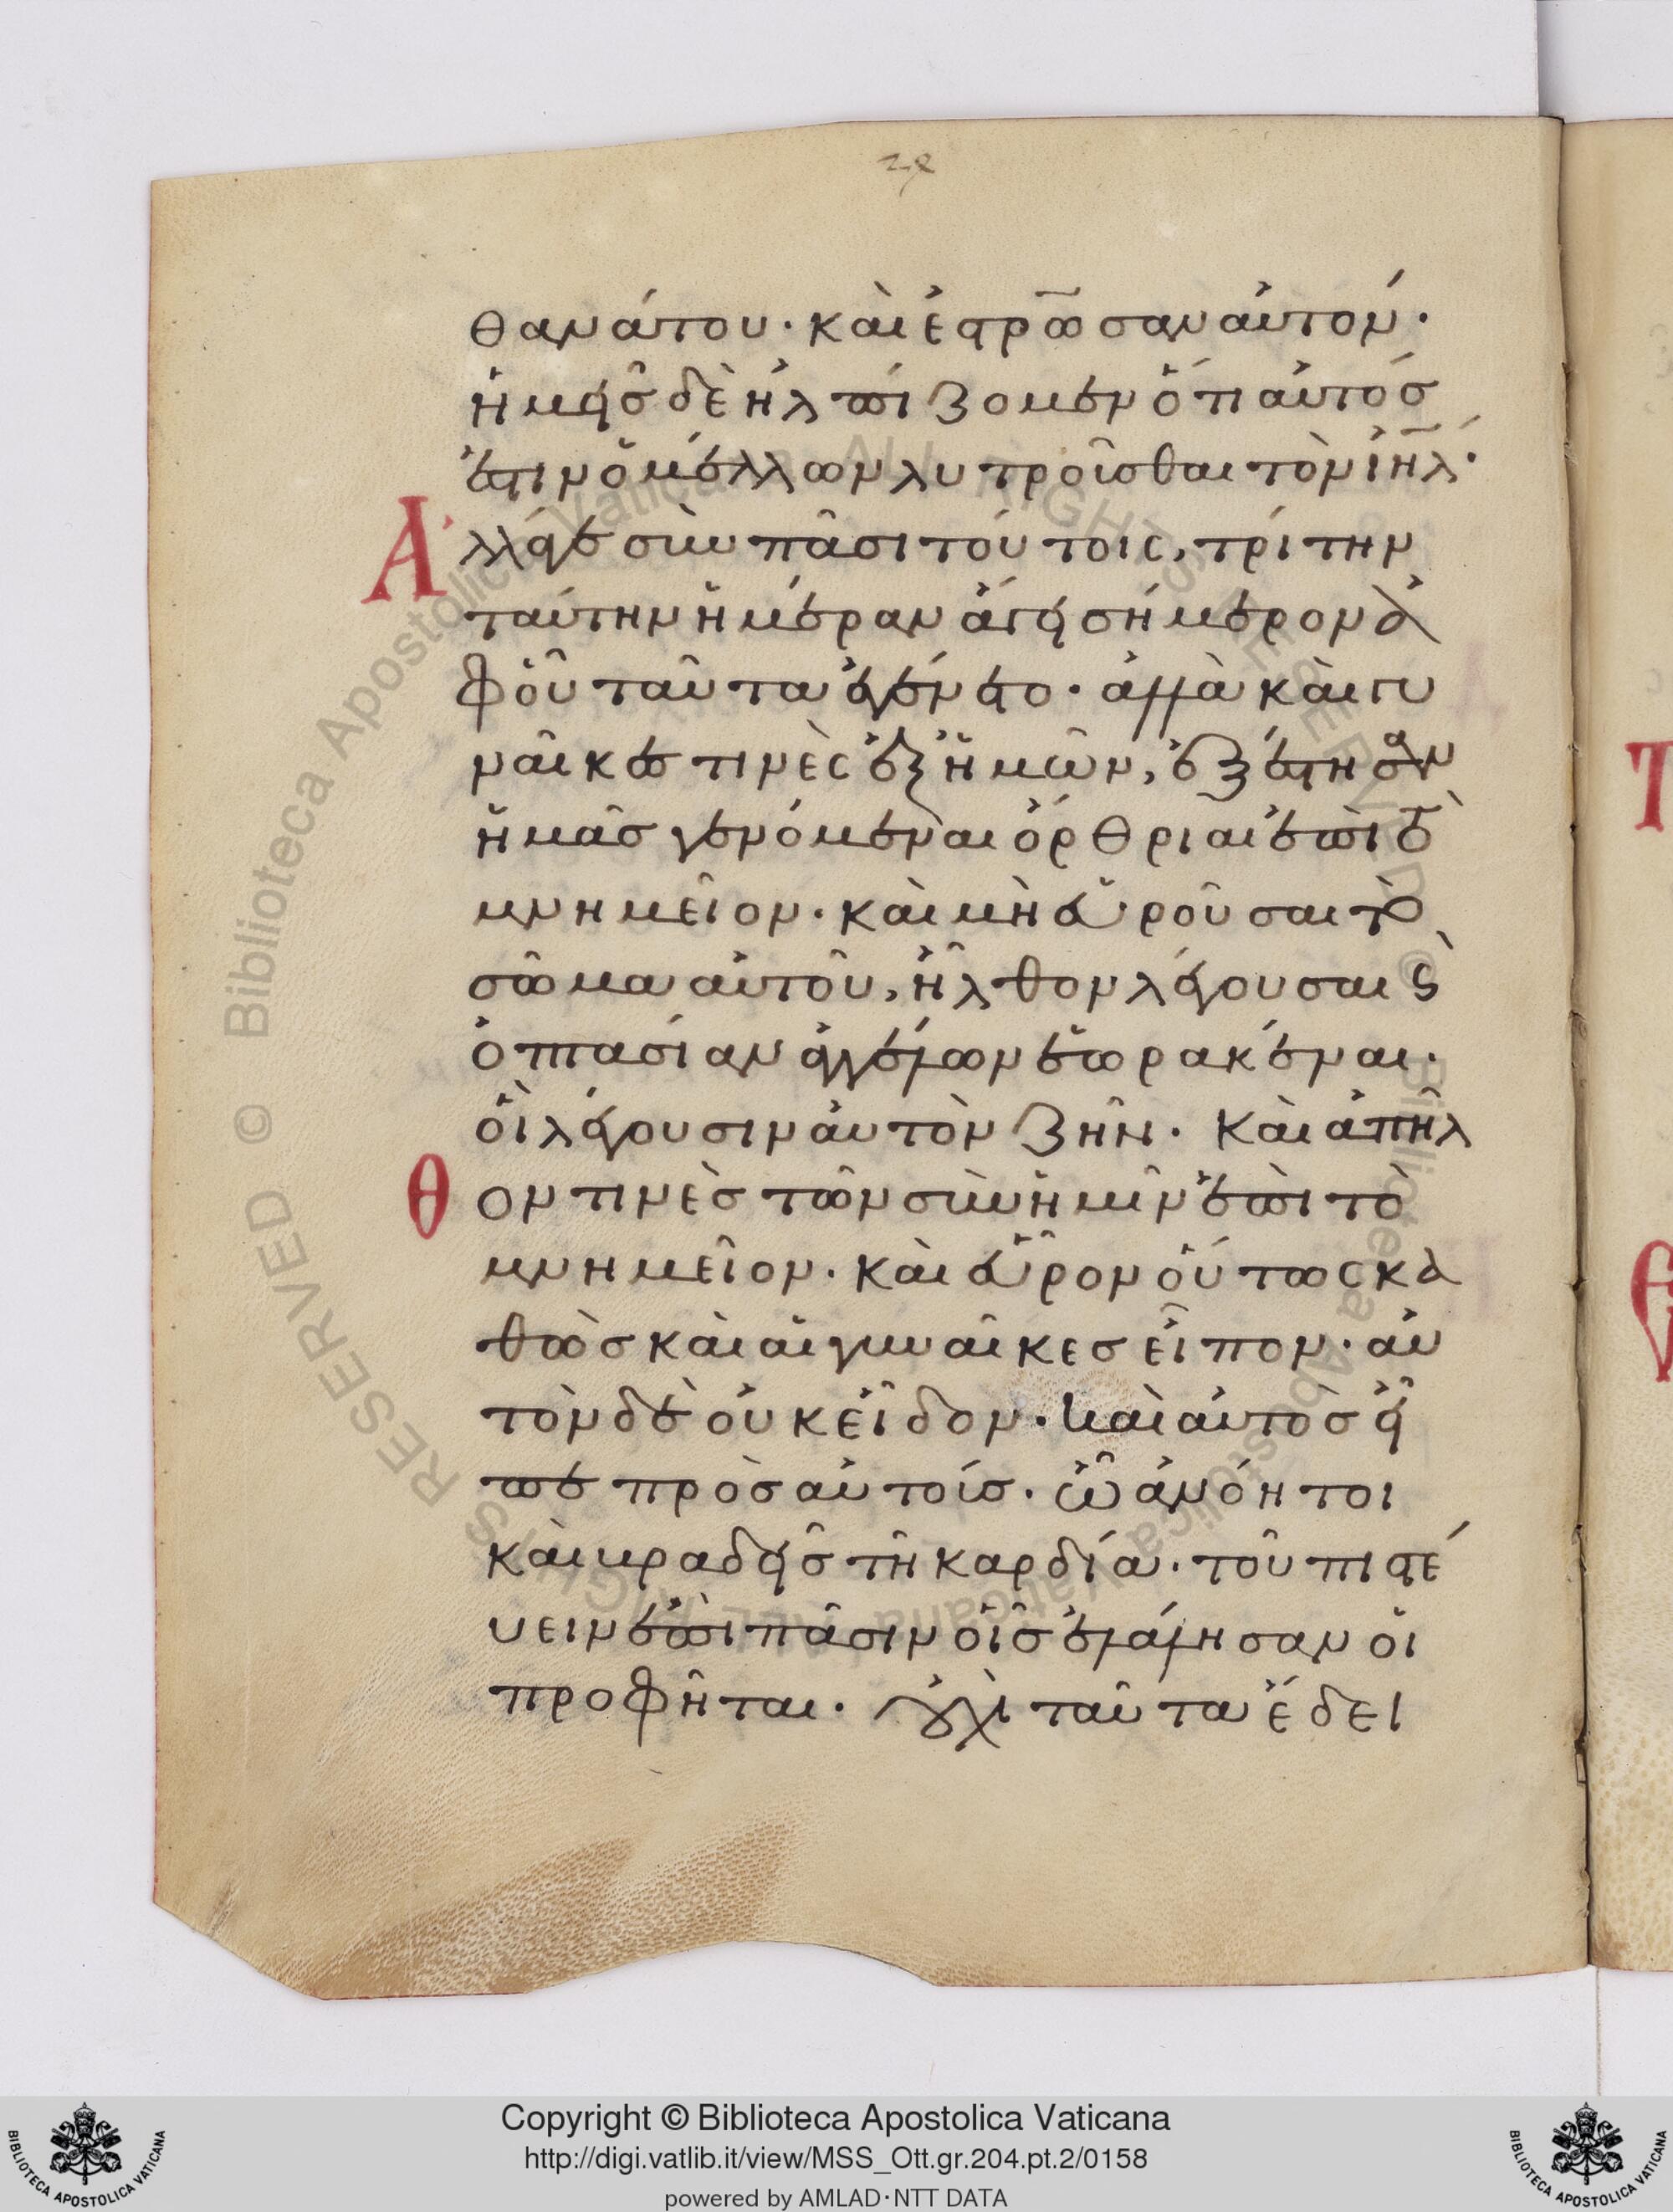 θανάτου· καὶ ἐστρω̅σαν αὐτόν·
ἡμεῖς δὲ ἠλπίζομεν ὅτι αὐτός
ἐστιν ὁ μέλλων λυτροῦσθαι τὸν ἰη̅λ·
Ἀλλάγε σὺν πᾶσι τούτοις, τρίτην
ταύτην ἡμέραν ἄγει σήμερον ἀ
φοῦ ταῦτα ἐγένετο· ἀλλὰ καὶ γυ
ναῖκες τινὲς ἐξ ἡμῶν, ἐξέστησαν
ἡμᾶς γενόμεναι ὄρθριαι ἐπὶ τὸ
μνημεῖον· καὶ μὴ εὑροῦσαι τὸ
σῶμα αὐτοῦ, ἦλθον λέγουσαι ϛ̀
ὀπτασίαν ἀγγέλων ἑωρακέναι·
οἳ λέγουσιν αὐτὸν ζῆν· Καὶ ἀπῆλ
θον τινὲς τῶν σὺν ἡμῖν ἐπὶ τὸ
μνημεῖον· καὶ εὗρον οὕτως κα
θὼς καὶ αἱ γυναῖκες εἶπον· αὐ
τὸν δὲ οὐκ εἶδον· καὶ αὐτὸς εἶ
πε πρὸς αὐτοίς· ὦ ἀνόητοι
καὶ βραδεῖς τῆ καρδία· τοῦ πιστέ
υειν ἐπὶ πᾶσιν οἷς ἐλάλησαν οἱ
προφῆται· οὐχὶ ταῦτα ἔδει
Copyright © Biblioteca Apostolica Vaticana
http://digi.vatlib.it/view/MSS_Ott.gr.204.pt.2/0158
powered by AMLAD·NTT DATA
BIBLIOTECA APOSTOLICA VATICANA
BIBLIOTECA APOSTOLICA VATICANA